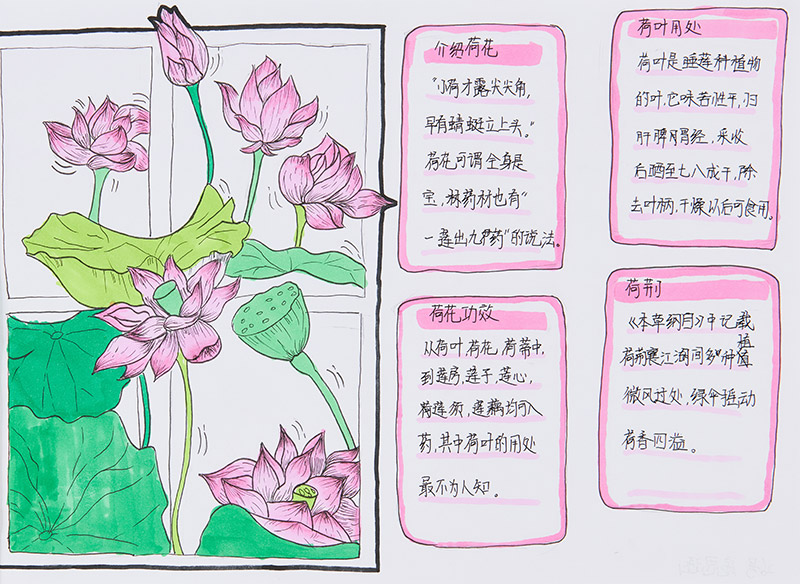 介绍荷花
"小荷才露尖尖角,
早有蜻蜓立上头。"
荷花可谓全身是
宝,
药材也有"
一莲出九药"的说法。
荷叶用处
荷叶是睡莲科植物
的叶,它味苦性平,归
肝脾胃经,采收
后晒至七八成干,除
去叶柄,干燥以后可食用。
荷花功效
从荷叶、荷花、荷蒂中,
到莲房、莲子、莲心,
荷莲须,莲藕均可入
药,其中荷叶的用处
最不为人知。
荷荆
《本草纲目》中记载
江湖间多
种植
微风过处,绿伞摇动
荷香四溢。